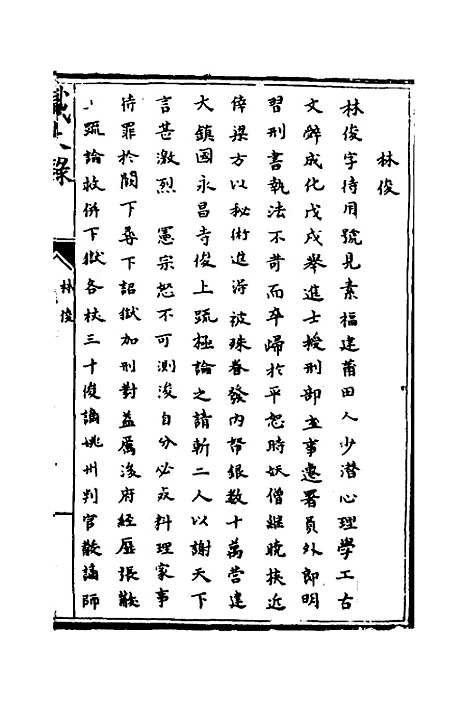 林俊
林俊字待用號見素福建莆田人少潛心理學工古
文辭成化戊戌舉進士授刑部主事遷署員外郎明
習刑書執法不苛而卒歸於平恕時妖僧繼曉挾近
倖梁方以秘術進得被殊眷發內帑銀数十萬營建
大鎮國永昌寺俊上疏極論之請斬二人以謝天下
言甚激烈　憲宗怒不可測浚自分必死料理家事
待罪於闕下尋下詔獄加刑對益厲浚府經歷張黻
上疏論救併下獄各杖三十俊謫姚州判官黻謫師
識大錄
林俊